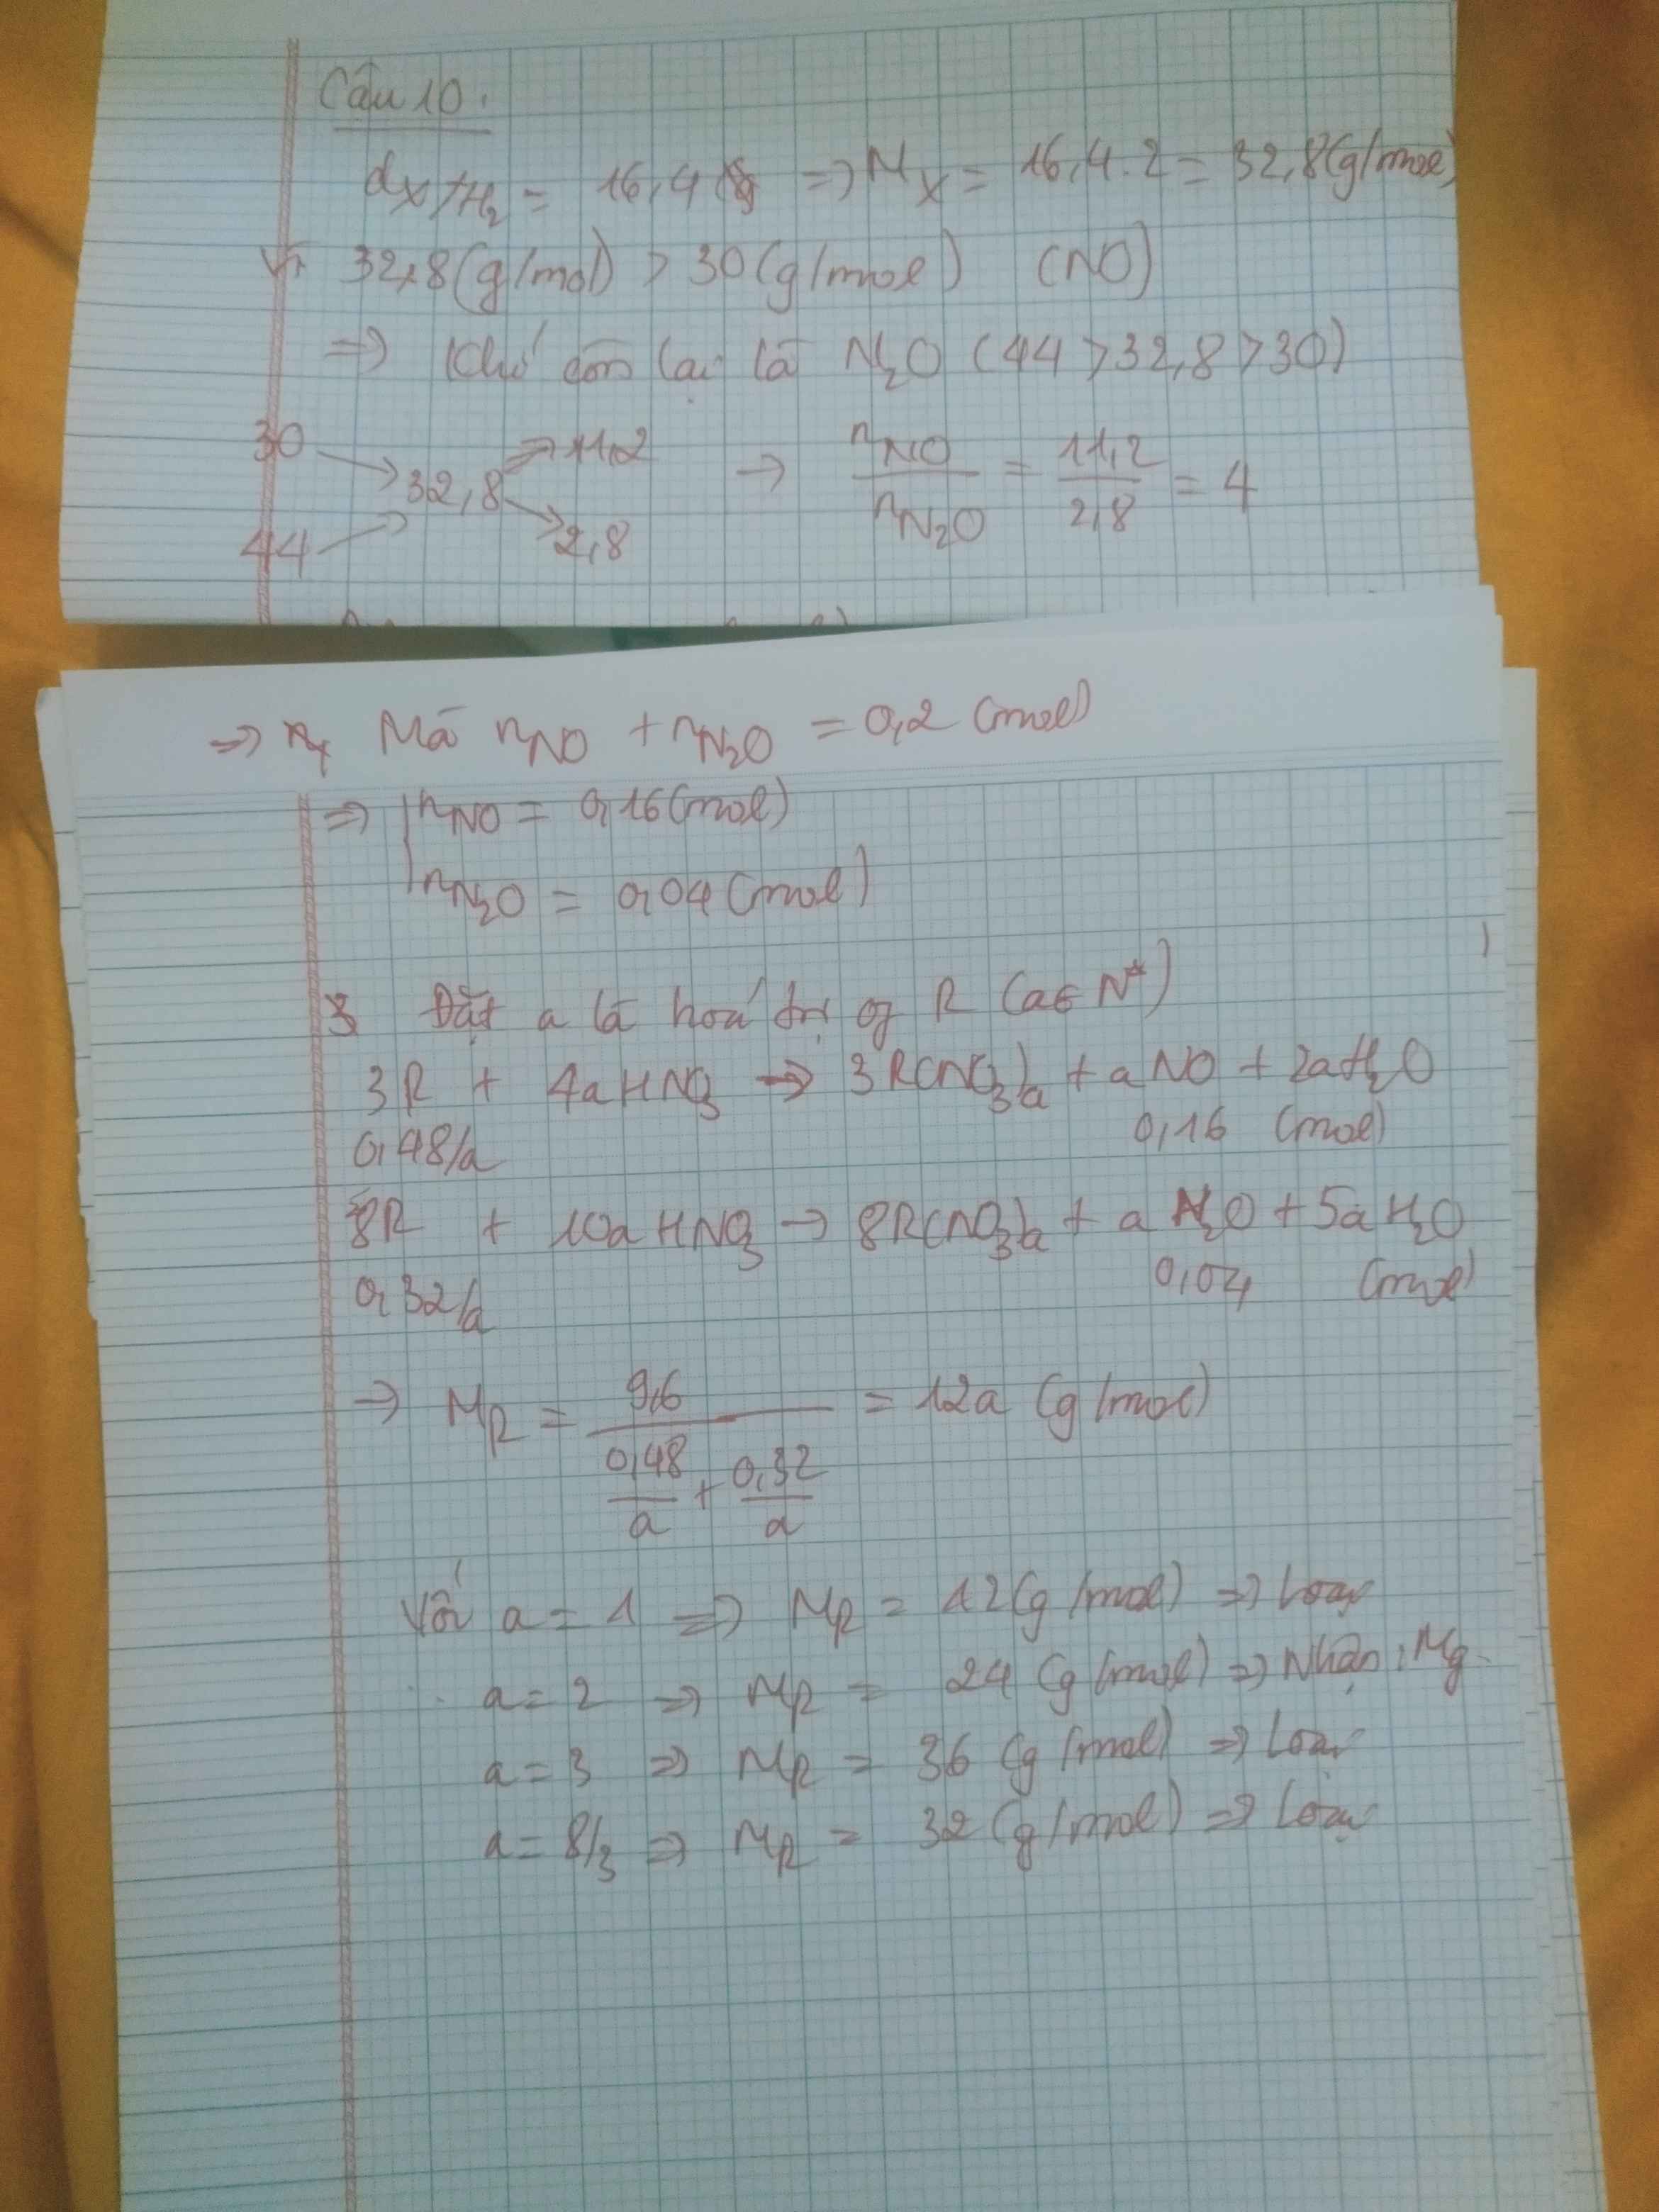 Câu 10.
dX/H2 = 16,4 => MX = 16,4.2 = 32,8(g/mol)
Vì 32,8(g/mol) > 30(g/mol) (NO)
=> Khí còn lại là N2O (44 > 32,8 > 30)
30 11,2 => nNO/nN2O = 11,2/2,8 = 4
32,8
44 2,8
=> Mà nNO + nN2O = 0,2 (mol)
=> nNO = 0,16(mol)
nN2O = 0,04(mol)
Đặt a là hoá trị of R (a∈N*)
3R + 4aHNO3 -> 3R(NO3)a + aNO + 2aH2O
0,48/a 0,16 (mol)
8R + 10aHNO3 -> 8R(NO3)a + aN2O + 5aH2O
0,32/a 0,04 (mol)
=> MR = 9,6/(0,48/a + 0,32/a) = 12a (g/mol)
Với a = 1 => MR = 12(g/mol) => Loại
a = 2 => MR = 24 (g/mol) => Nhận: Mg.
a = 3 => MR = 36 (g/mol) => Loại
a = 8/3 => MR = 32 (g/mol) => Loại